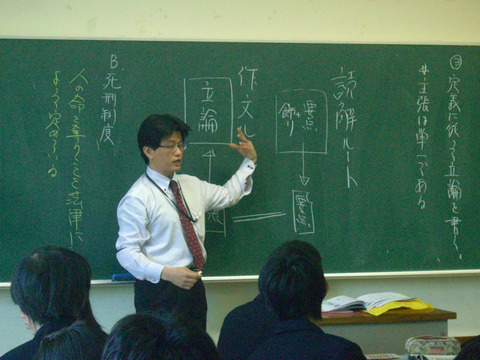 ③定義に従って立論を書く。
＊主張は単一である
読解ルート
要点+飾り
要点
作文ル
立論
B.死刑制度
人の命を奪うことを法律に
よって定めている